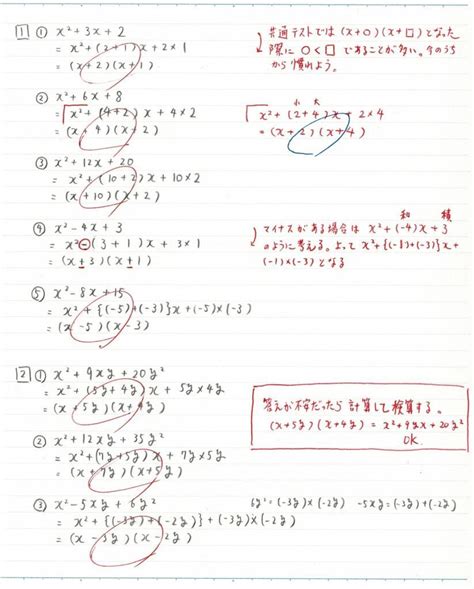 1 ① x²+3x+2
= x²+(2+1)x+2×1
= (x+2)(x+1)
共通テストでは(x+○)(x+□)となった
際に○<□であることが多い。今のうち
から慣れよう。
② x²+6x+8
= x²+(4+2)x+4×2
= (x+4)(x+2)
小 大
x²+(2+4)x+2×4
= (x+2)(x+4)
③ x²+12x+20
= x²+(10+2)x+10×2
= (x+10)(x+2)
④ x²-4x+3
= x²-(3+1)x+3×1
= (x±3)(x±1)
和 積
マイナスがある場合は x²+(-4)x+3
のように考える。よって x²+{(-1)+(-3)}x+
(-1)×(-3)となる
⑤ x²-8x+15
= x²+{(-5)+(-3)}x+(-5)×(-3)
= (x-5)(x-3)
2 ① x²+9xy+20y²
= x²+(5y+4y)x+5y×4y
= (x+5y)(x+4y)
答えが不安だったら計算して検算する。
(x+5y)(x+4y)=x²+9yx+20y²
OK.
② x²+12xy+35y²
= x²+(7y+5y)x+7y×5y
= (x+7y)(x+5y)
③ x²-5xy+6y²
= x²+{(-3y)+(-2y)}+(-3y)×(-2y)
= (x-3y)(x-2y)
6y²=(-3y)×(-2y) -5xy=(-3y)+(-2y)